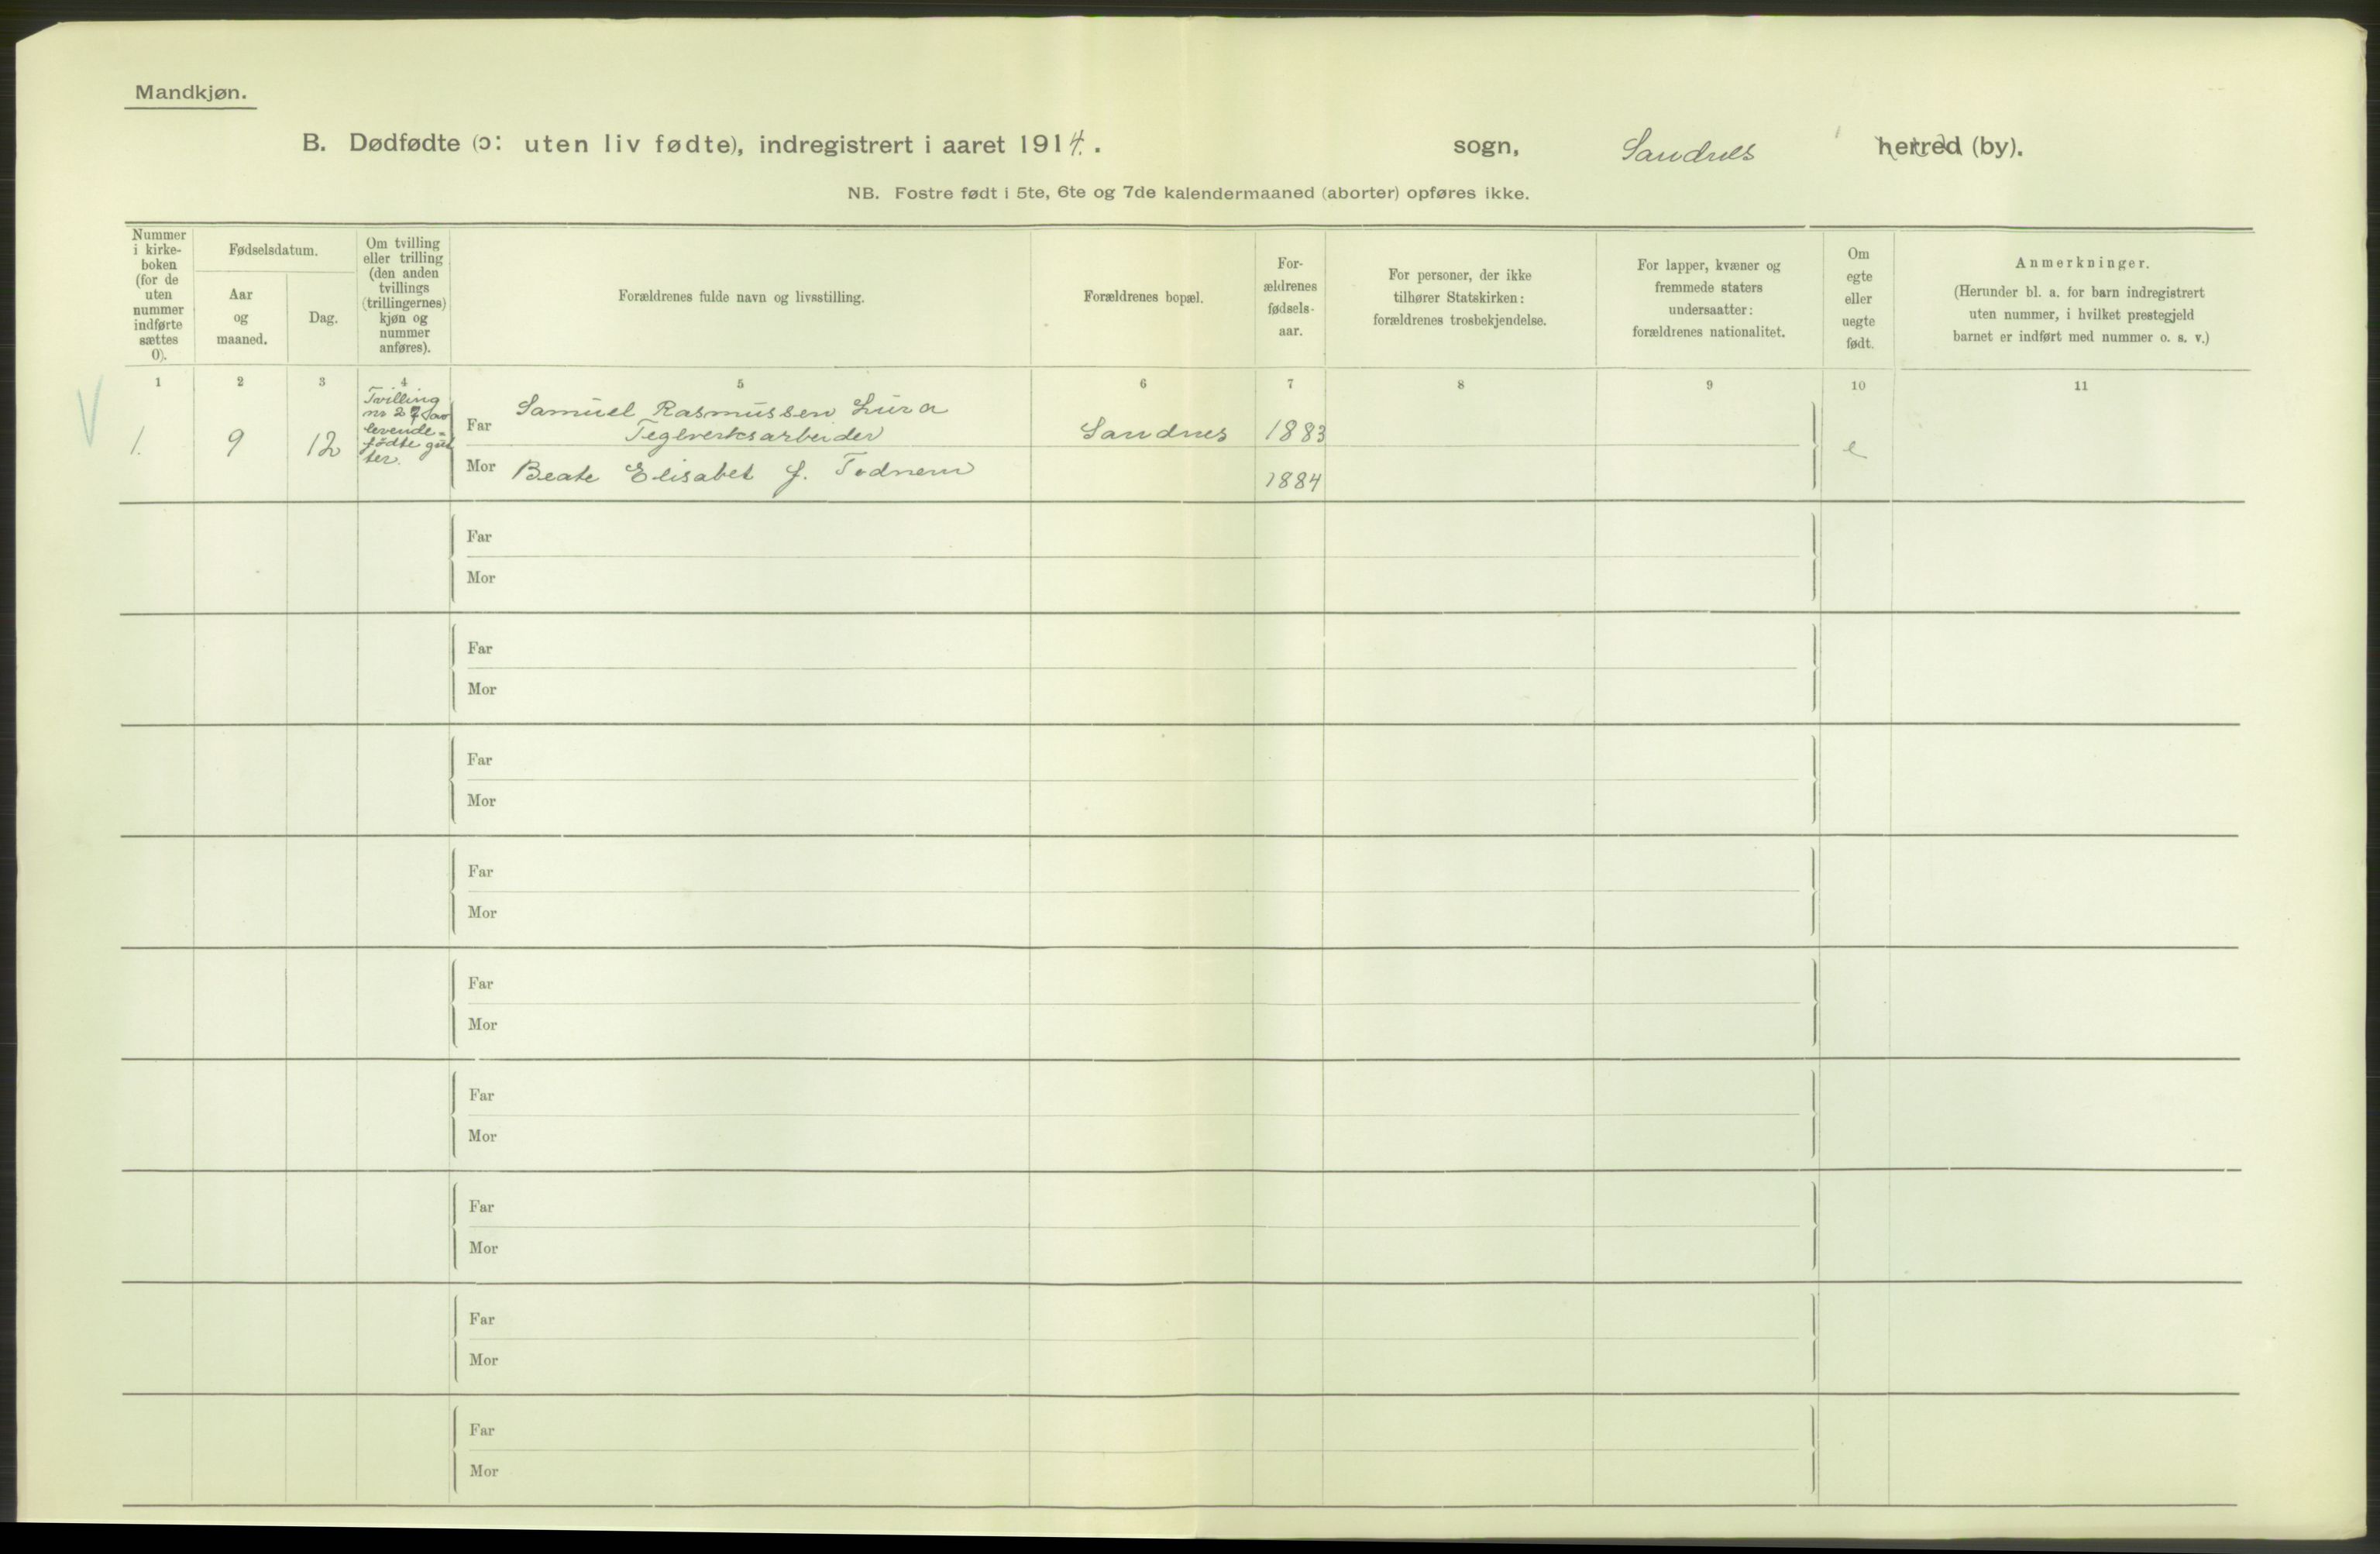 Mandkjøn.
B. Dødfødte (ɔ: uten liv fødte), indregistrert i aaret 1914. . sogn, Sandnes herred (by).
NB. Fostre født i 5te, 6te og 7de kalendermaaned (aborter) opføres ikke.
Nummer
i kirke-
boken
(for de
uten
nummer
indførte
sættes
0).
Fødselsdatum.
Aar
og
maaned.
Dag.
Om tvilling
eller trilling
(den anden
tvillings
(trillingernes)
kjøn og
nummer
anføres).
Forældrenes fulde navn og livsstilling.
Forældrenes bopæl.
For-
ældrenes
fødsels-
aar.
For personer, der ikke
tilhører Statskirken:
forældrenes trosbekjendelse.
For lapper, kvæner og
fremmede staters
undersaatter:
forældrenes nationalitet.
Om
egte
eller
uegte
født.
Anmerkninger.
(Herunder bl. a. for barn indregistrert
uten nummer, i hvilket prestegjeld
barnet er indført med nummer o. s. v.)
1 2 3 4 5 6 7 8 9 10 11
V
1. 9 12
Tvilling
nr 27
levende-
fødte gut
ter.
Far Samuel Rasmussen Lura
Teglverksarbeider Sandnes 1883
Mor Beate Elisabet f. Todnem 1884
e
Far
Mor
Far
Mor
Far
Mor
Far
Mor
Far
Mor
Far
Mor
Far
Mor
Far
Mor
Far
Mor